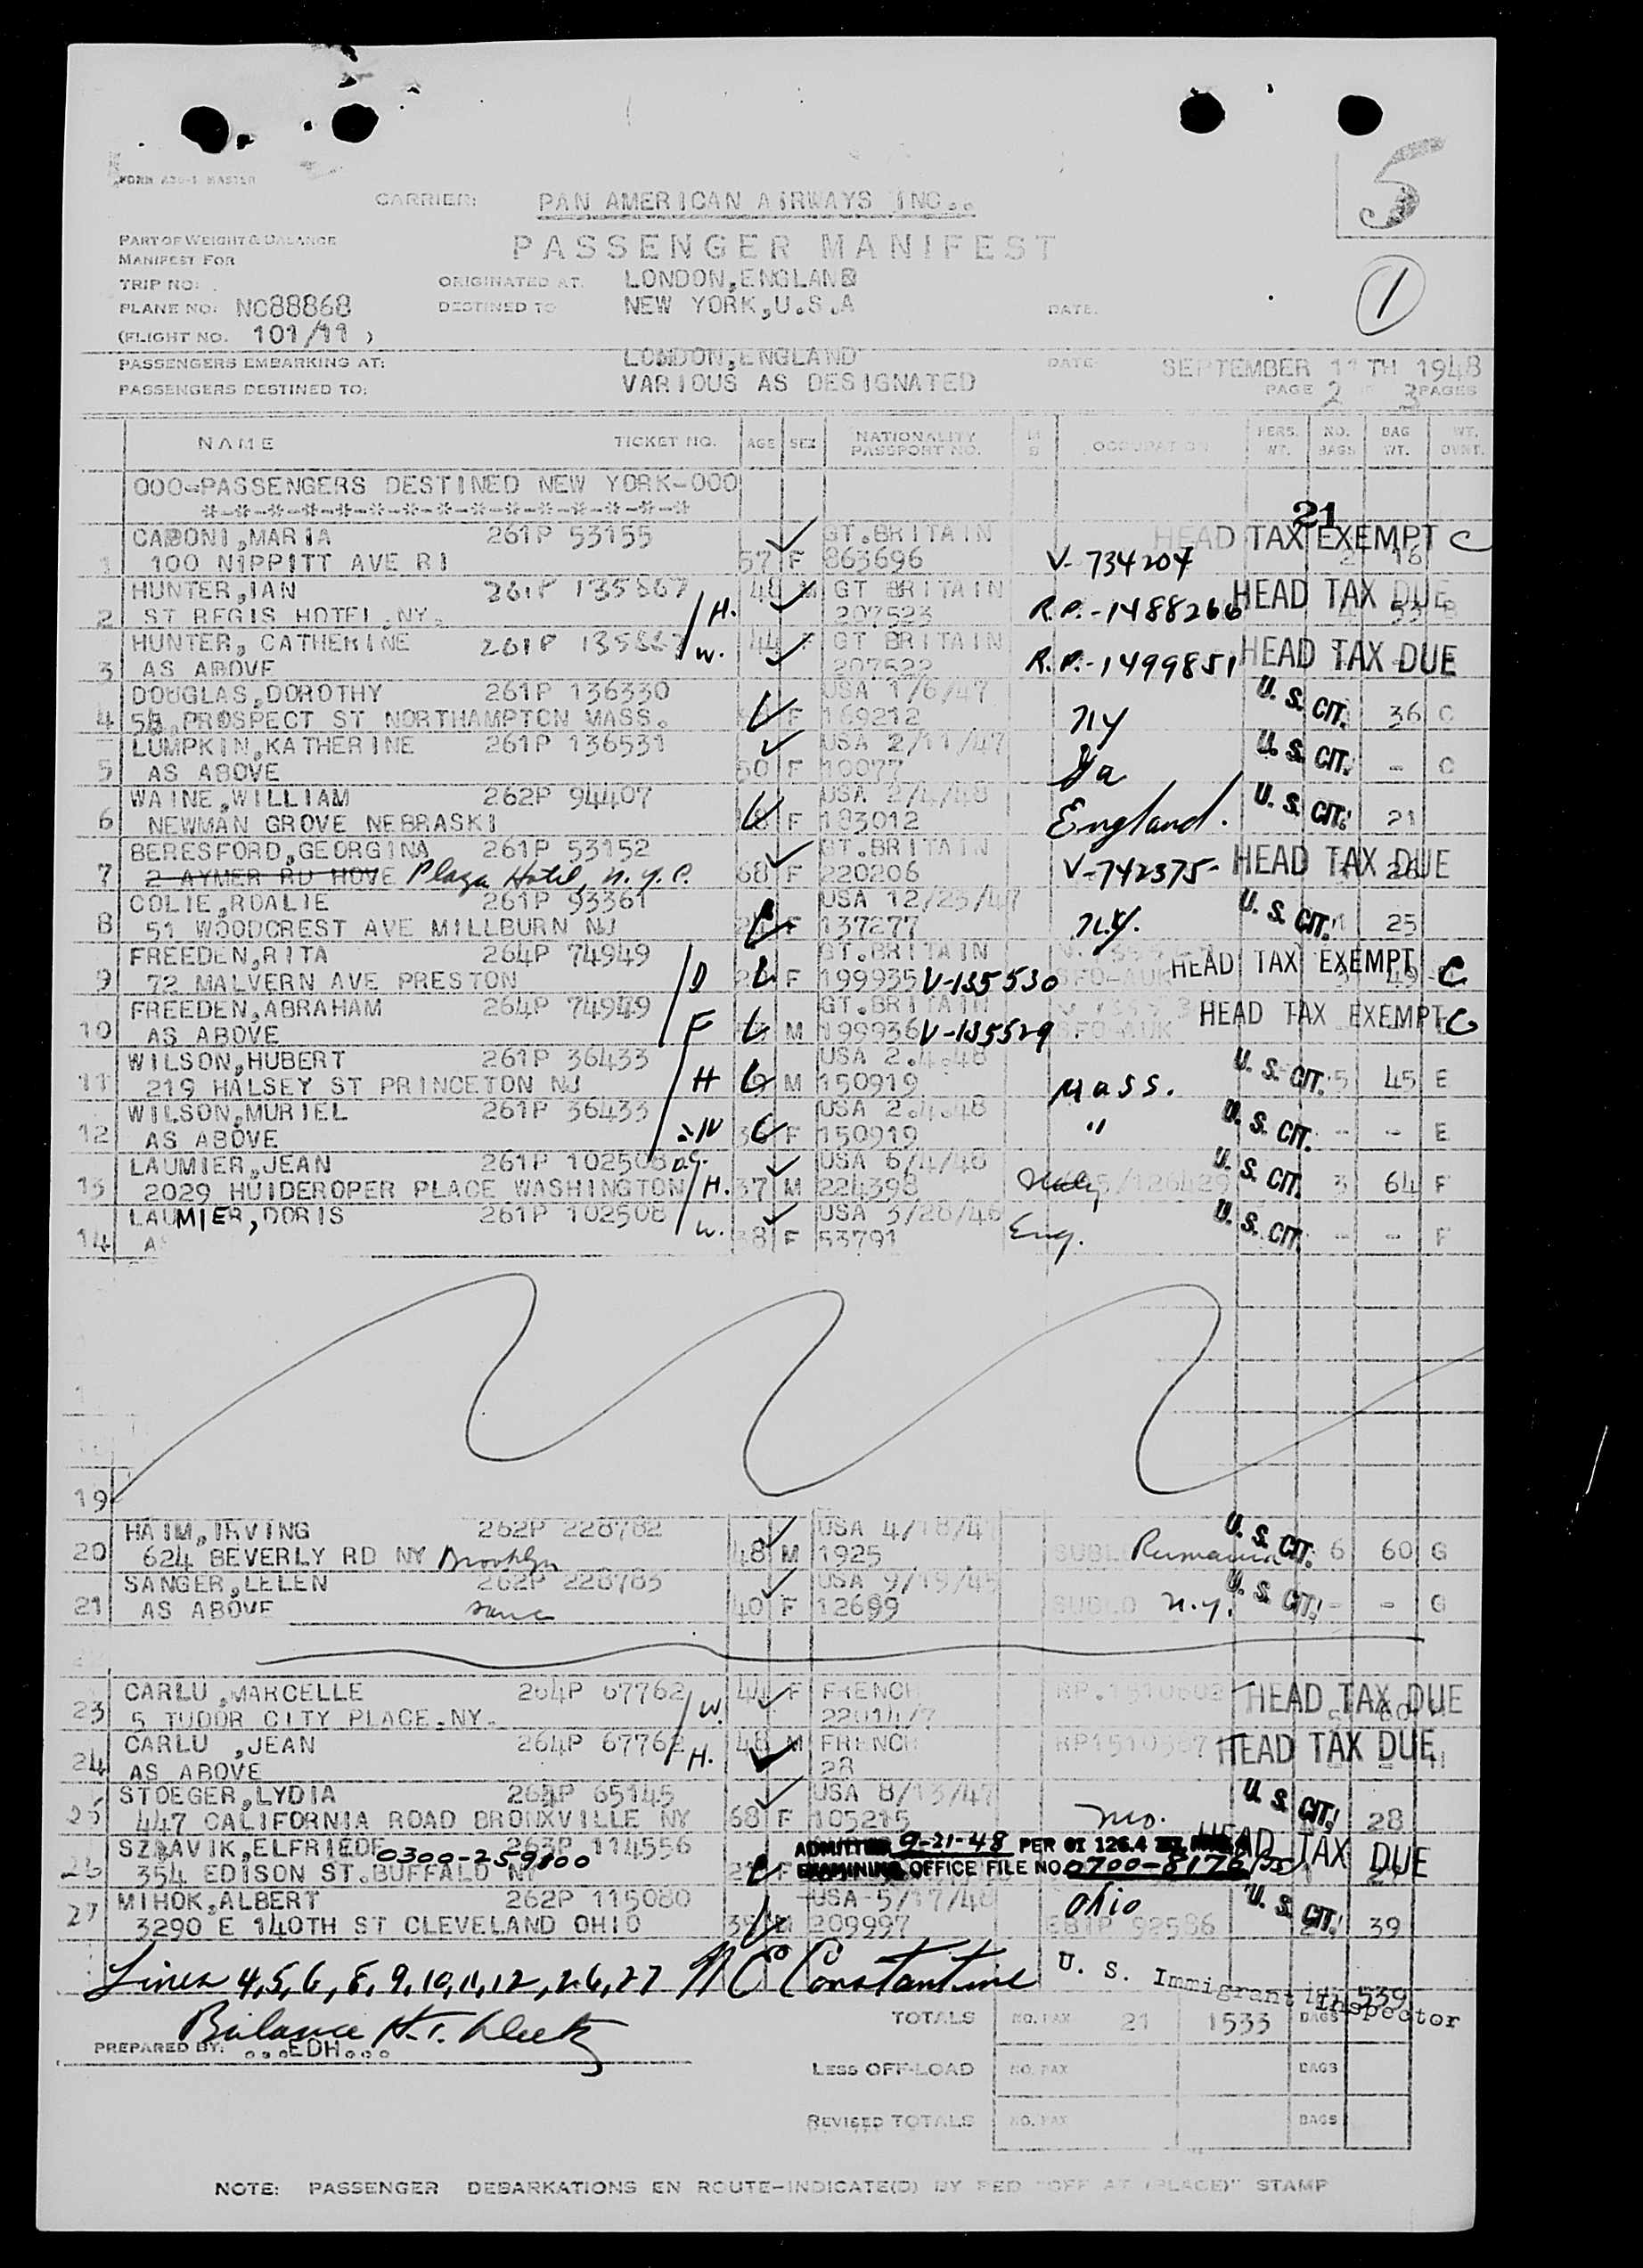 FORM A30-1 MASTER
5
CARRIER: PAN AMERICAN AIRWAYS INC..
PART OF WEIGHT & BALANCE
PASSENGER MANIFEST
MANIFEST FOR
1
TRIP NO: ORIGINATED AT. LONDON,ENGLAND
PLANE NO: NC88868 DESTINED TO NEW YORK,U.S.A DATE.
(FLIGHT NO. 101/11 )
PASSENGERS EMBARKING AT: LONDON,ENGLAND DATE SEPTEMBER 11TH 1948
PASSENGERS DESTINED TO: VARIOUS AS DESIGNATED PAGE 2 3 PAGES
NAME TICKET NO. AGE SEX NATIONALITY PASSPORT NO. OCCUPATION PERS. WT. NO. BAGS BAG WT. WT. DVNT.
000-PASSENGERS DESTINED NEW YORK-000
*-*-*-*-*-*-*-*-*-*-*-*-*-*
21
CABONI,MARIA 261P 53155 GT.BRITAIN HEAD TAX EXEMPT C
1 100 NIPPITT AVE RI 57 F 863696 V-734204 2 16
HUNTER,IAN 261P 135667 48 M GT BRITAIN HEAD TAX DUE
2 ST REGIS HOTEL,NY. H. 207523 R.P.-1488266 53
HUNTER, CATHERINE 261P 135667 44 F GT BRITAIN
3 AS ABOVE W. 207522 R.P.-1499851 HEAD TAX DUE
DOUGLAS,DOROTHY 261P 136330 USA 1/6/47 U. S. CIT.
4 54,PROSPECT ST NORTHAMPTON MASS. F 169212 NY 36 C
LUMPKIN,KATHERINE 261P 136531 USA 2/11/47 U. S. CIT.
5 AS ABOVE 50 F 10077 Ga - C
WAINE,WILLIAM 262P 94407 USA 2/4/48 U. S. CIT.
6 NEWMAN GROVE NEBRASKI F 183012 England. 21
BERESFORD,GEORGINA 261P 53152 GT.BRITAIN HEAD TAX DUE
7 2 AYMER RD HOVE Plaza Hotel, N.Y.C. 68 F 220206 V-742375- 26
COLIE,ROALIE 261P 93361 USA 12/23/47 U. S. CIT.
8 51 WOODCREST AVE MILLBURN NJ F 137277 N.Y. 25
FREEDEN,RITA 264P 74949 GT.BRITAIN HEAD TAX EXEMPT C
9 72 MALVERN AVE PRESTON D F 199935 V-135530 SFO-AUK 49
FREEDEN,ABRAHAM 264P 74949 GT.BRITAIN HEAD TAX EXEMPT C
10 AS ABOVE F M 199936 V-135529 SFO-AUK
WILSON,HUBERT 261P 36433 USA 2.4.48 U. S. CIT.
11 219 HALSEY ST PRINCETON NJ H M 150919 Mass. 5 45 E
WILSON,MURIEL 261P 36433 USA 2.4.48 U. S. CIT.
12 AS ABOVE W F 150919 " - - E
LAUMIER,JEAN 261P 102508 D.C. USA 6/4/48 U. S. CIT.
13 2029 HUIDEROPER PLACE WASHINGTON H. 37 M 224398 Italy 3 64 F
LAUMIER,DORIS 261P 102508 USA 3/28/46 U. S. CIT.
14 W. 38 F 53791 Eng. - - F
19
HAIM,IRVING 262P 228782 USA 4/18/4 U. S. CIT.
20 624 BEVERLY RD NY Brooklyn 48 M 1925 Rumania 6 60 G
SANGER,LELEN 262P 228783 USA 9/19/45 U. S. CIT.
21 AS ABOVE same 40 F 12699 N.Y. - - G
CARLU ,MARCELLE 264P 67762 44 F FRENCH RP.1510602 HEAD TAX DUE
23 5 TUDOR CITY PLACE.NY. W. 60
CARLU ,JEAN 264P 67762 48 M FRENCH HEAD TAX DUE
24 AS ABOVE H. 28
STOEGER,LYDIA 264P 65145 USA 8/13/47 U. S. CIT.
25 447 CALIFORNIA ROAD BRONXVILLE NY 68 F 105215 Mo. 28
SZLAVIK,ELFRIEDE 0300-259800 263P 114556 ADMITTED 9-21-48 PER OI 126.4 HEAD TAX DUE
26 354 EDISON ST.BUFFALO NY F EXAMINING OFFICE FILE NO 0700-8176
MIHOK,ALBERT 262P 115080 USA-5/17/48 Ohio U. S. CIT.
27 3290 E 140TH ST CLEVELAND OHIO M 209997 92586 39
Lines 4,5,6,8,9,10,11,12,26,27 N C Constantine U. S. Immigrant Inspector
539
Balance H.T.
TOTALS NO. PAX 21 1533 BAGS
PREPARED BY. ...EDH...
LESS OFF-LOAD NO. PAX BAGS
REVISED TOTALS NO. PAX BAGS
NOTE: PASSENGER DEBARKATIONS EN ROUTE-INDICATE(D) BY RED "OFF AT (PLACE)" STAMP